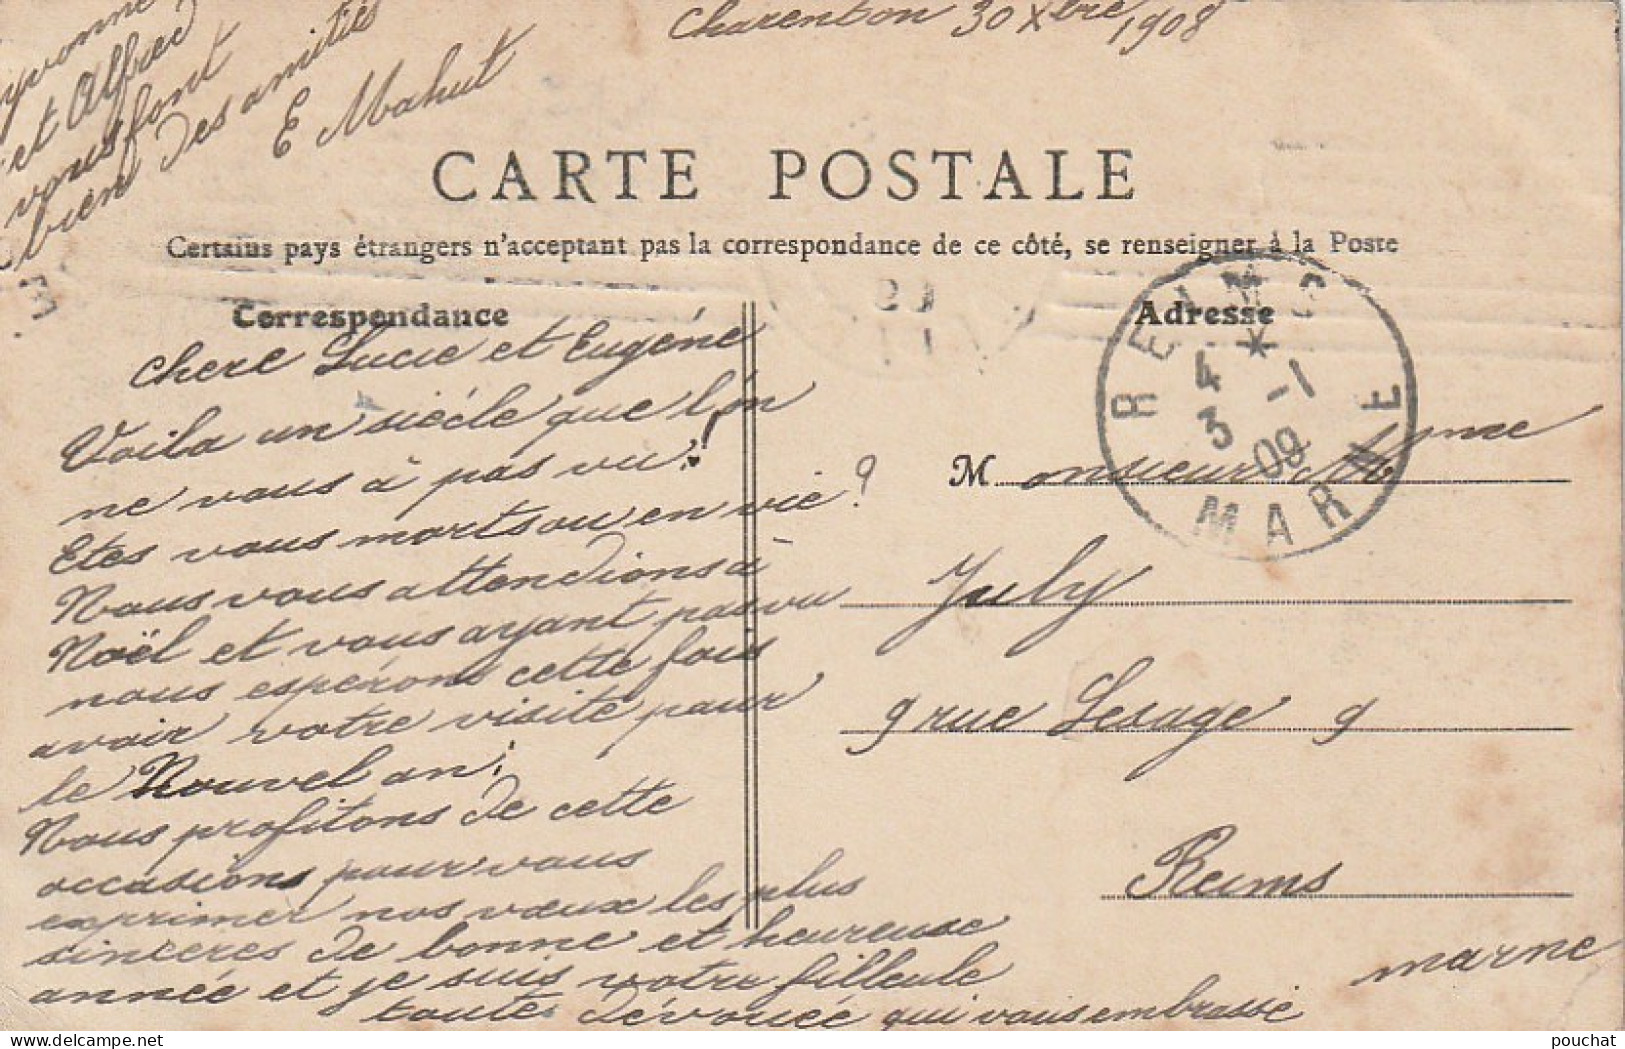 Charenton 30 Xbre 1908
CARTE POSTALE
Certains pays étrangers n'acceptant pas la correspondance de ce côté, se renseigner à la Poste
Correspondance
chere Lucie et Eugéne
Voila un siécle que l'on
ne vous à pas vu!
Etes vous morts ou en vie?
Nous vous attendions à
Noël et vous ayant pas vu
nous espérons cette fois
avoir votre visite pour
le Nouvel an.
Nous profitons de cette
occasions pour vous
exprimer nos vœux les plus
sinceres de bonne et heureuse
année et je suis votre filleule
toute dévouée qui vous embrasse
yvonne
et Alfred
vous font
bien des amitiés
E Mahut
Adresse
Monsieur Mme
July
9 rue Lesage 9
Reims
marne
REIMS
4 *
3 -1
09
MARNE
pouchat